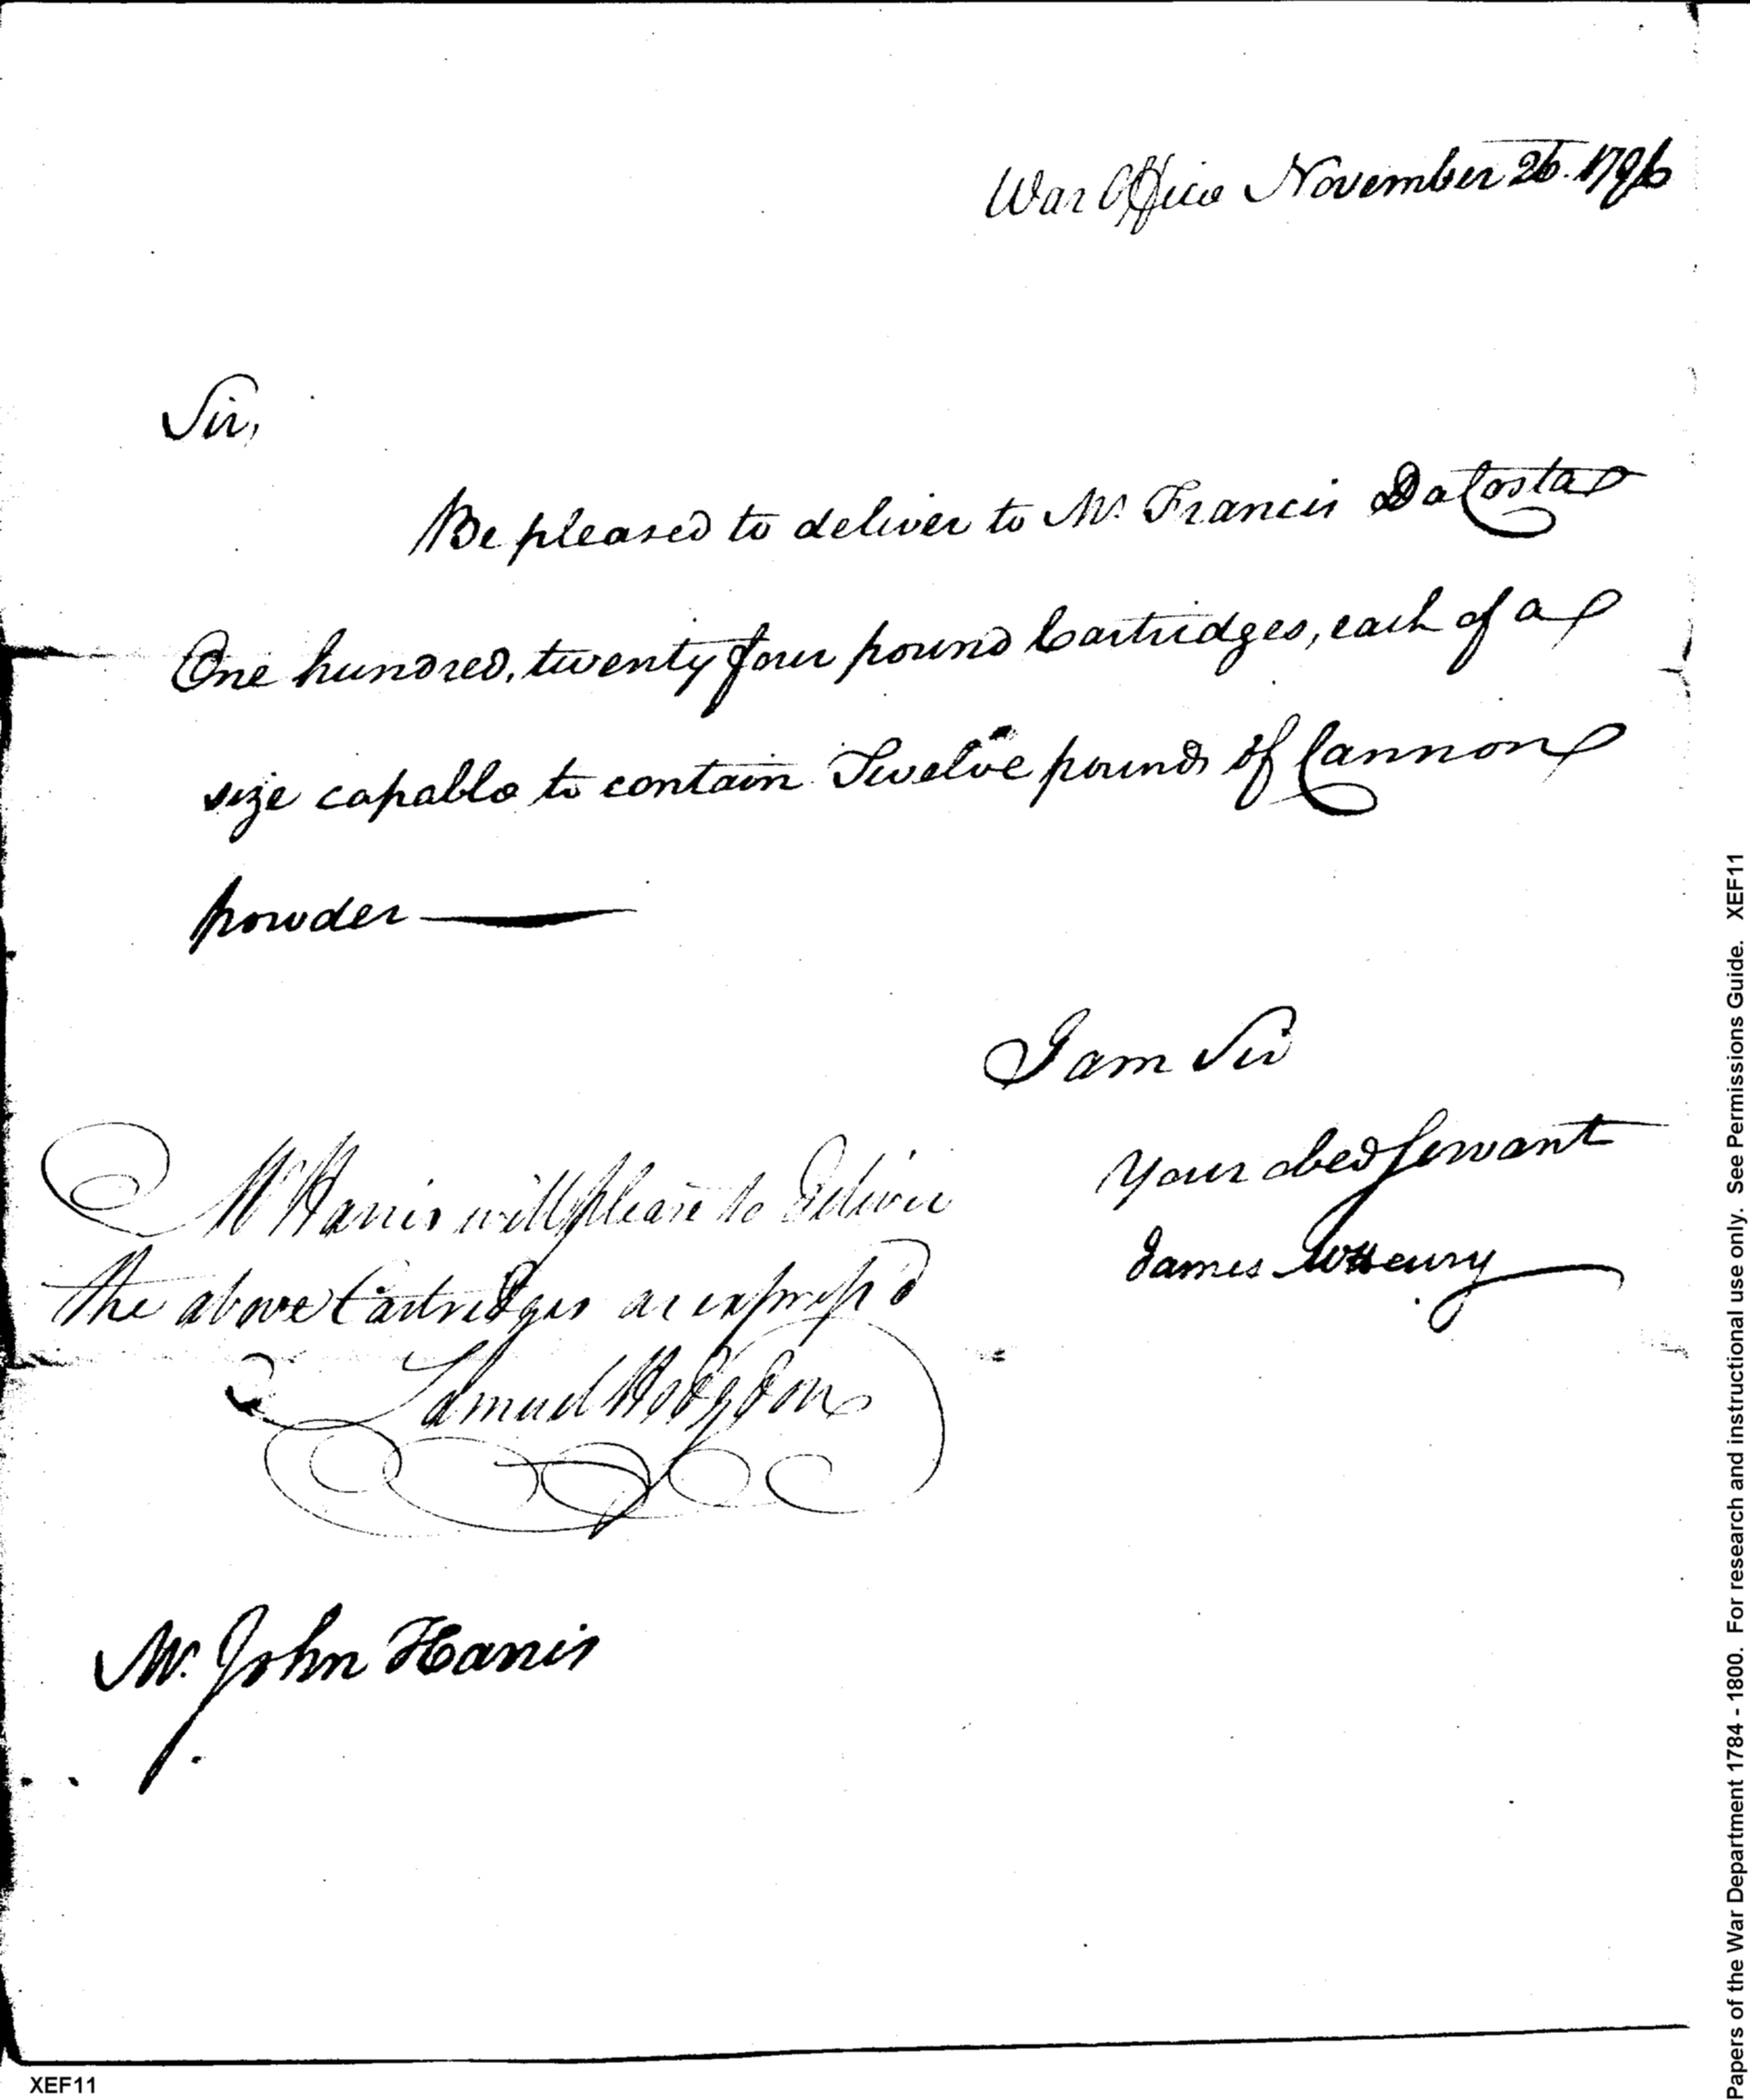 War Office November 26. 1796
Sir,
Be pleased to deliver to Mr. Francis DaCosta
One hundred, twenty four pound Cartridges, each of a
size capable to contain Twelve pounds of Cannon
powder
I am Sir
Your obed Servant
James McHenry
Mr Harris will please to deliver
the above Cartridges as express'd
Samuel Hodgdon
Mr. John Harris
XEF11
Papers of the War Department 1784 - 1800. For research and instructional use only. See Permissions Guide. XEF11